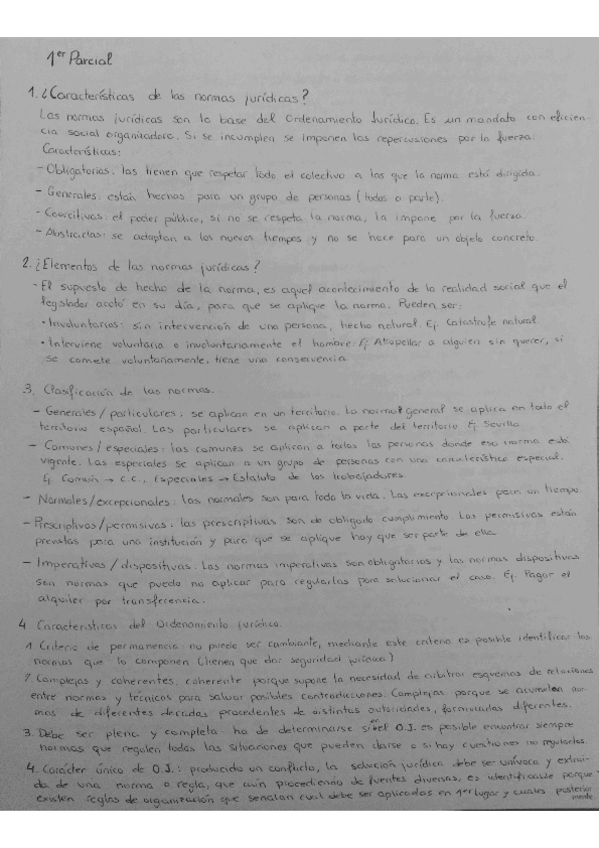 1er Parcial
1. ¿Características de las normas jurídicas?
Las normas jurídicas son la base del Ordenamiento Jurídico. Es un mandato con eficien-
cia social organizadora. Si se incumplen se imponen las repercusiones por la fuerza.
Características:
- Obligatorias: las tienen que respetar todo el colectivo a los que la norma está dirigida.
- Generales: están hechas para un grupo de personas (todos o parte).
- Coercitivas: el poder público, si no se respeta la norma, la impone por la fuerza.
- Abstractas: se adaptan a los nuevos tiempos y no se hace para un objeto concreto.
2. ¿Elementos de las normas jurídicas?
- El supuesto de hecho de la norma, es aquel acontecimiento de la realidad social que el
legislador acotó en su día, para que se aplique la norma. Pueden ser:
• Involuntarias: sin intervención de una persona, hecho natural. Ej. Catástrofe natural.
• Interviene voluntaria o involuntariamente el hombre. Ej. Atropellar a alguien sin querer, si
se comete voluntariamente, tiene una
3. Clasificación de las normas.
- Generales/particulares: se aplican en un territorio. La norma general se aplica en todo el
territorio español. Las particulares se aplican a parte del territorio Ej. Sevilla.
- Comunes/especiales: las comunes se aplican a todas las personas donde esa norma está
vigente. Las especiales se aplican a un grupo de personas con una característica especial.
Ej. Común → C.C., Especiales → Estatuto de los trabajadores.
- Normales/excepcionales: las normales son para toda la vida. Las excepcionales para un tiempo.
- Prescriptivas/permisivas: las prescriptivas son de obligado cumplimiento. Las permisivas están
previstas para una institución y para que se aplique hay que ser parte de ella.
- Imperativas/dispositivas. Las normas imperativas son obligatorias y las normas dispositivas
son normas que puedo no aplicar para regularlas para solucionar el caso. Ej. Pagar el
alquiler por transferencia.
4. Características del Ordenamiento jurídico.
1. Criterio de permanencia: no puede ser cambiante, mediante este criterio es posible identificar las
normas que lo componen (tienen que dar seguridad jurídica)
2. Complejas y coherentes: coherente porque supone la necesidad de arbitrar esquemas de relaciones
entre normas y técnicas para salvar posibles contradicciones. Complejas porque se acumulan nor-
mas de diferentes décadas procedentes de distintas autoridades, formuladas diferentes.
3. Debe ser plena y completa: ha de determinarse si en el O.J. es posible encontrar siempre
normas que regulen todas las situaciones que pueden darse o si hay cuestiones no reguladas.
4. Carácter único de O.J.: producido un conflicto, la solución jurídica debe ser unívoca y extraí-
da de una norma o regla, que aún procediendo de fuentes diversas, es identificable porque
existen reglas de organización que señalan cual debe ser aplicada en 1er lugar y cuales posterior
mente.